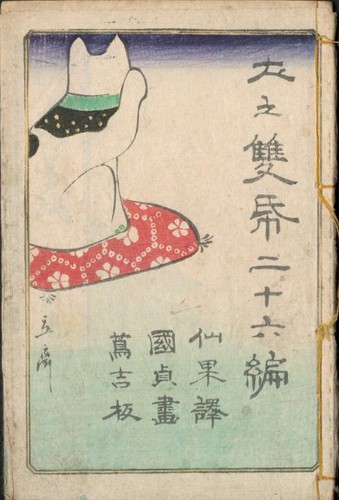 犬之雙帋二十六編
仙果譯
國貞畫
蔦吉板
立齋